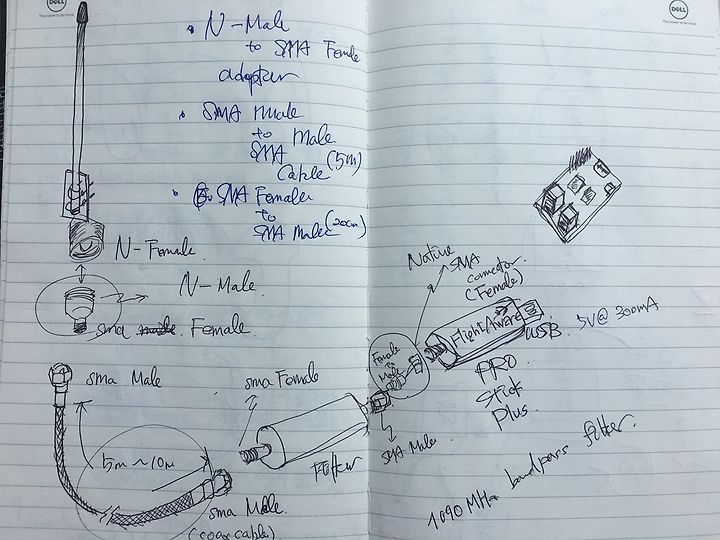 DELL
The power to do more
DELL
The power to do more
• N-Male
to SMA Female
adapter
• SMA male
to Male
SMA
Cable (5m)
• SMA Female
to
SMA Male (20cm)
N-Female.
N-Male.
sma Female.
sma Male
5m ~ 10m
sma Male
(coax cable)
sma Female
Filter
SMA Male.
Female
Male
Native
SMA
connector.
(Female)
FlightAware
USB. 5V@ 300mA
PRO
Stick
Plus.
1090 MHz bandpass filter.